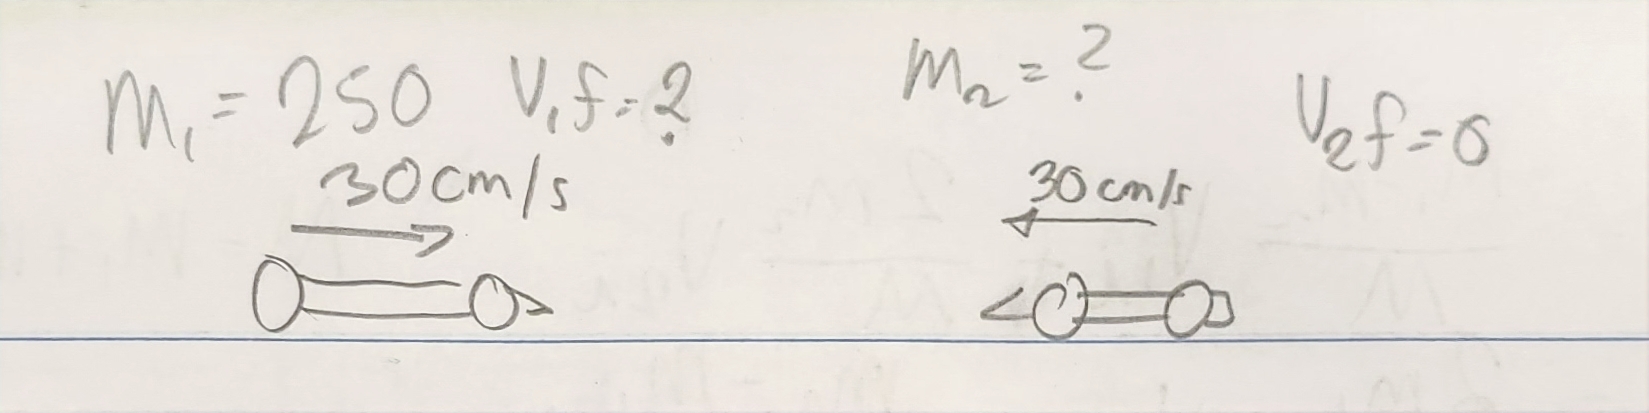 m₁ = 250 V₁f = ?
30cm/s
m₂ = ?
V₂f = 0
30cm/s